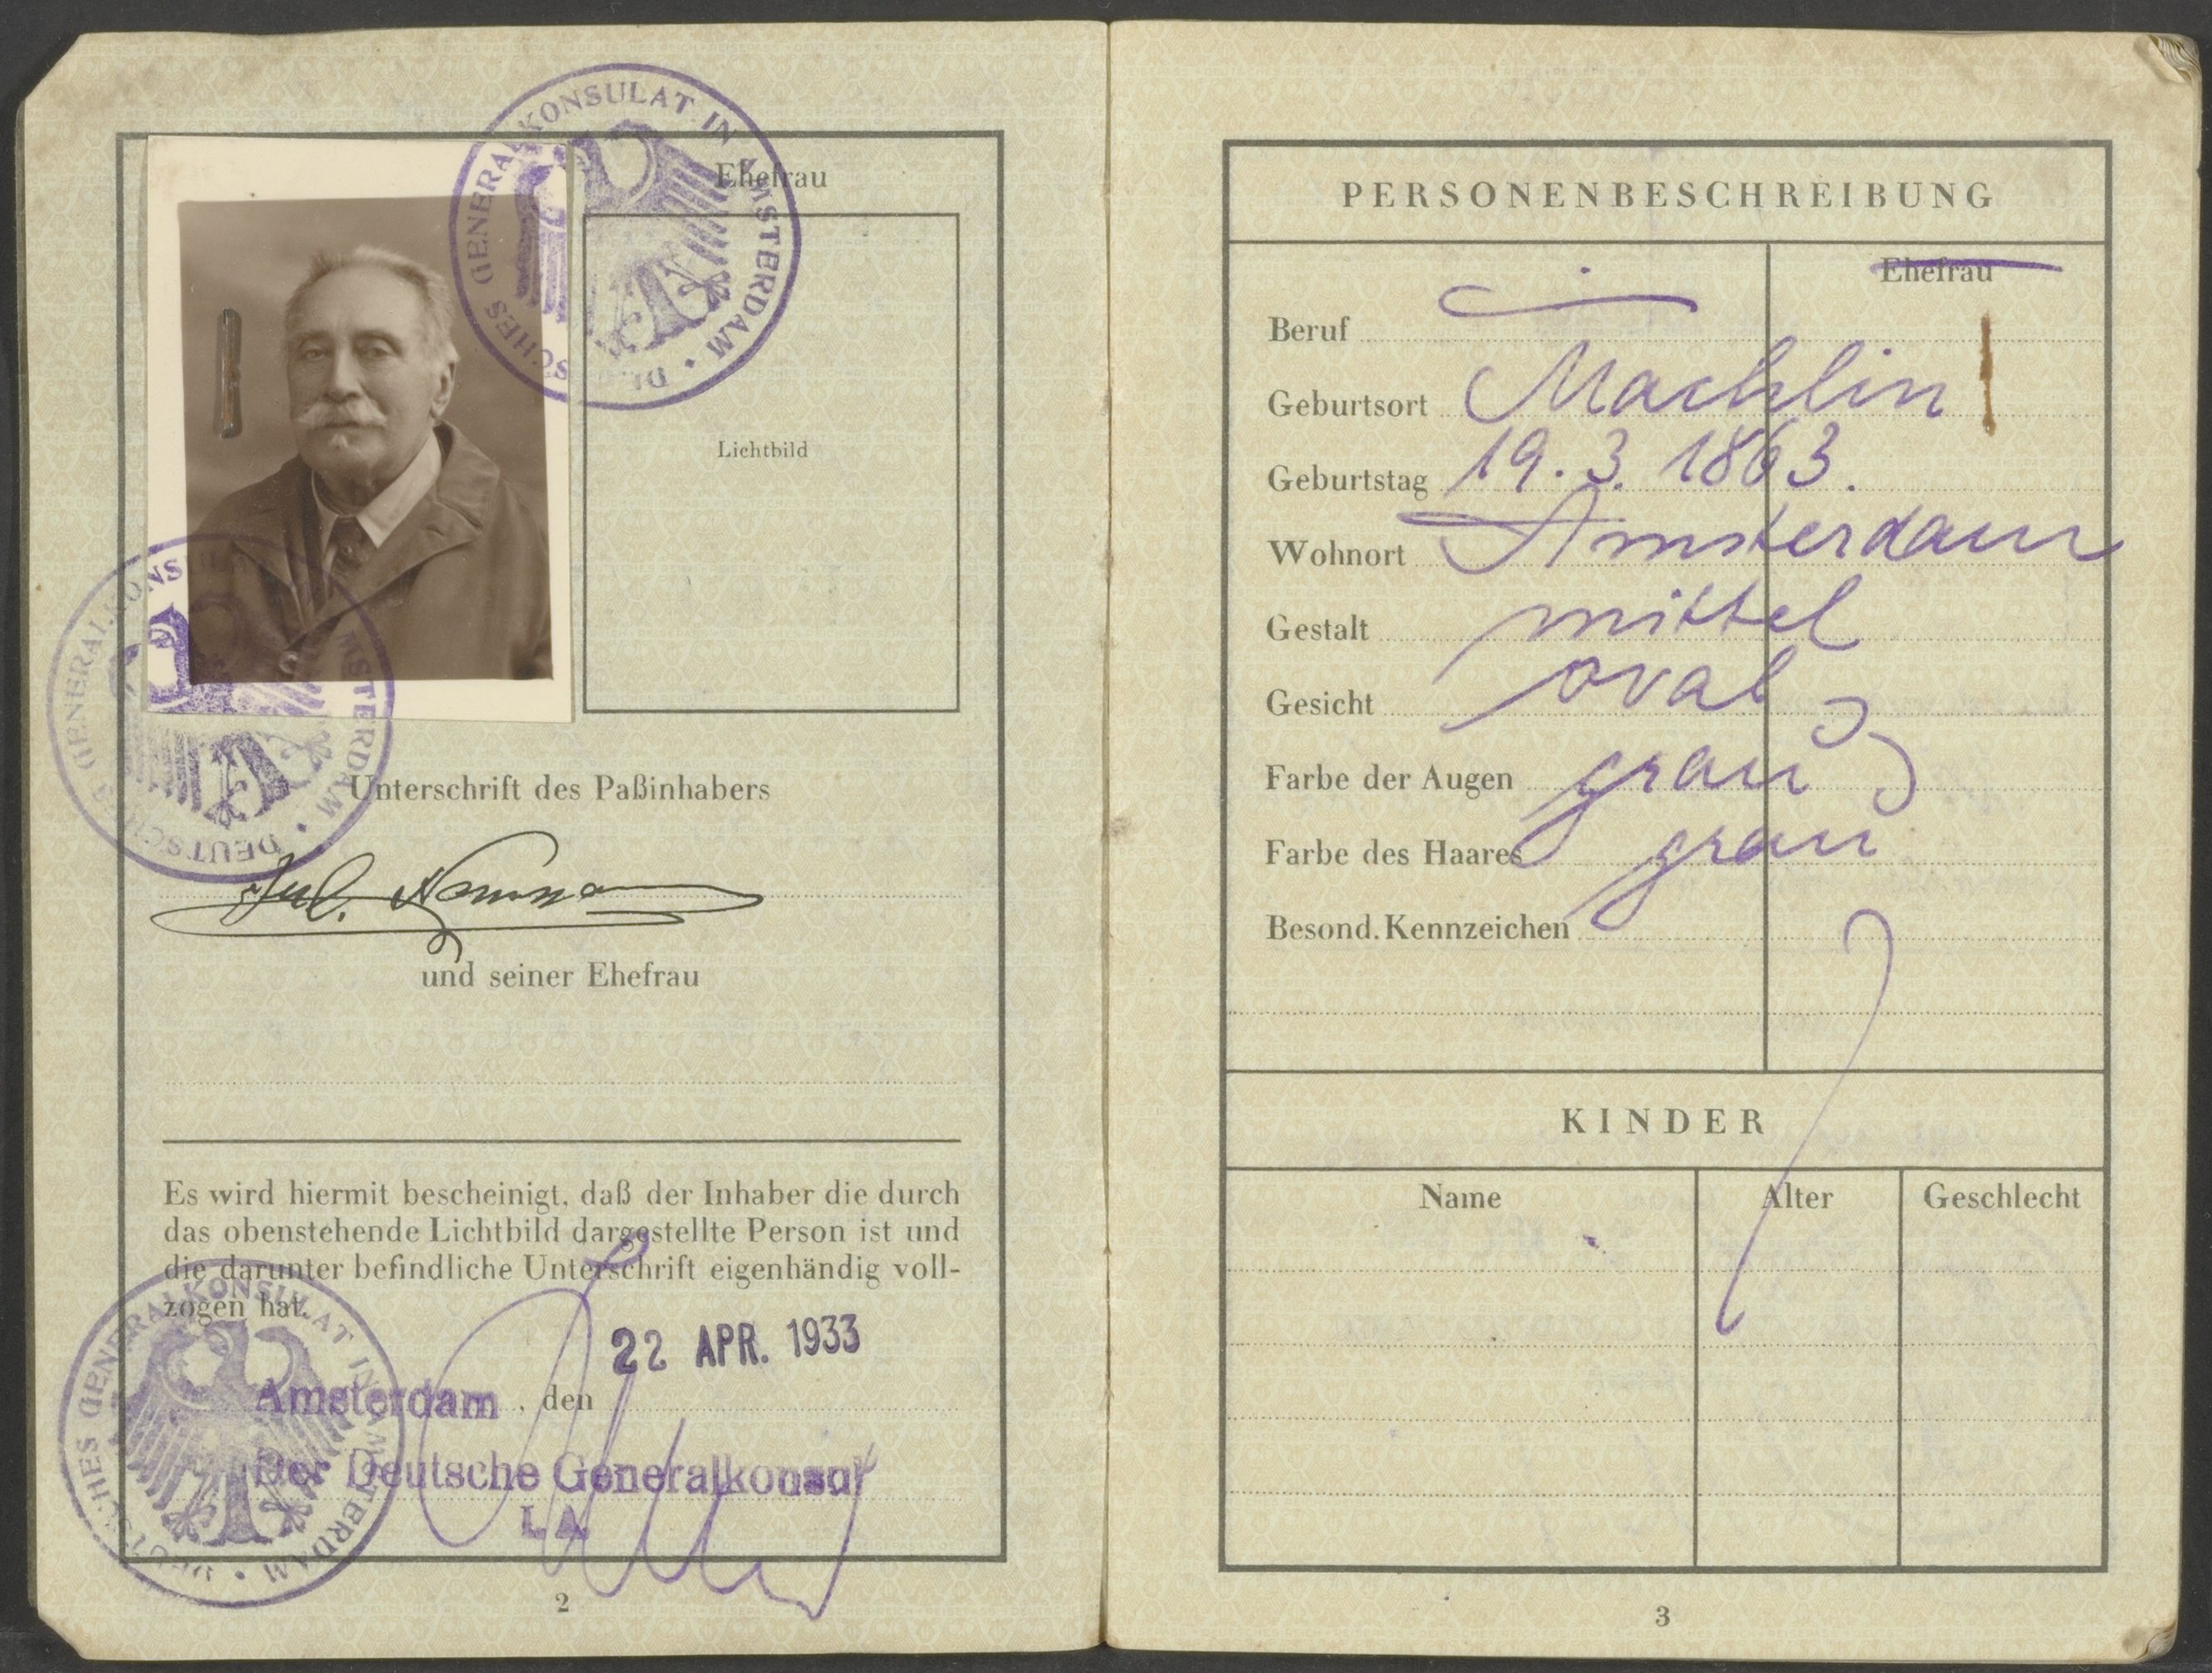 DEUTSCHES GENERALKONSULAT IN AMSTERDAM
Ehefrau
Lichtbild
DEUTSCHES GENERALKONSULAT IN AMSTERDAM
Unterschrift des Paßinhabers
Jul.
und seiner Ehefrau
Es wird hiermit bescheinigt, daß der Inhaber die durch
das obenstehende Lichtbild dargestellte Person ist und
die darunter befindliche Unterschrift eigenhändig voll-
zogen hat.
22 APR. 1933
Amsterdam, den
Der Deutsche Generalkonsul
I. A.
DEUTSCHES GENERALKONSULAT IN AMSTERDAM
2
PERSONENBESCHREIBUNG
Ehefrau
Beruf
Geburtsort Machlin
Geburtstag 19.3.1863.
Wohnort Amsterdam
Gestalt mittel
Gesicht oval
Farbe der Augen grau
Farbe des Haares grau
Besond. Kennzeichen
KINDER
Name Alter Geschlecht
3